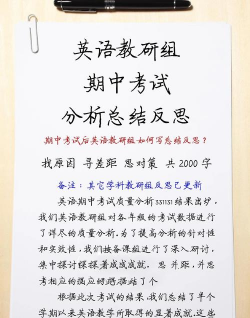 英语教研组
期中考试
分析总结反思
期中考试后英语教研组如何写总结反思？
找原因 寻差距 思对策 共2000字
备注：其它学科教研组反思已更新
英语期中考试质量分析331131结果出炉，
我们英语教研组对各年级的考试数据进行
了详尽的质量分析。为了提高分析的针对性
和实效性，我们按备课组进行了深入研讨，
集中探讨
思考相应的
根据此次考试的结果，我们总结了半个
学期以来英语教学所取得的显著成就，这些